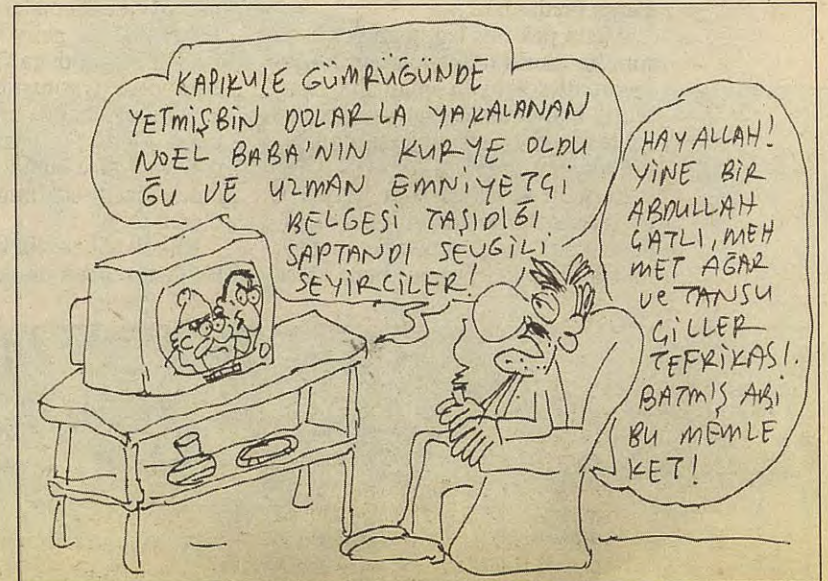 KAPIKULE GÜMRÜĞÜNDE
YETMİŞBİN DOLARLA YAKALANAN
NOEL BABA'NIN KURYE OLDU
ĞU VE UZMAN EMNİYETÇİ
BELGESİ TAŞIDIĞI
SAPTANDI SEVGİLİ
SEYİRCİLER!
HAY ALLAH!
YİNE BİR
ABDULLAH
ÇATLI, MEH
MET AĞAR
ve TANSU
ÇİLLER
TEFRİKASI.
BATMIŞ ABİ
BU MEMLE
KET!